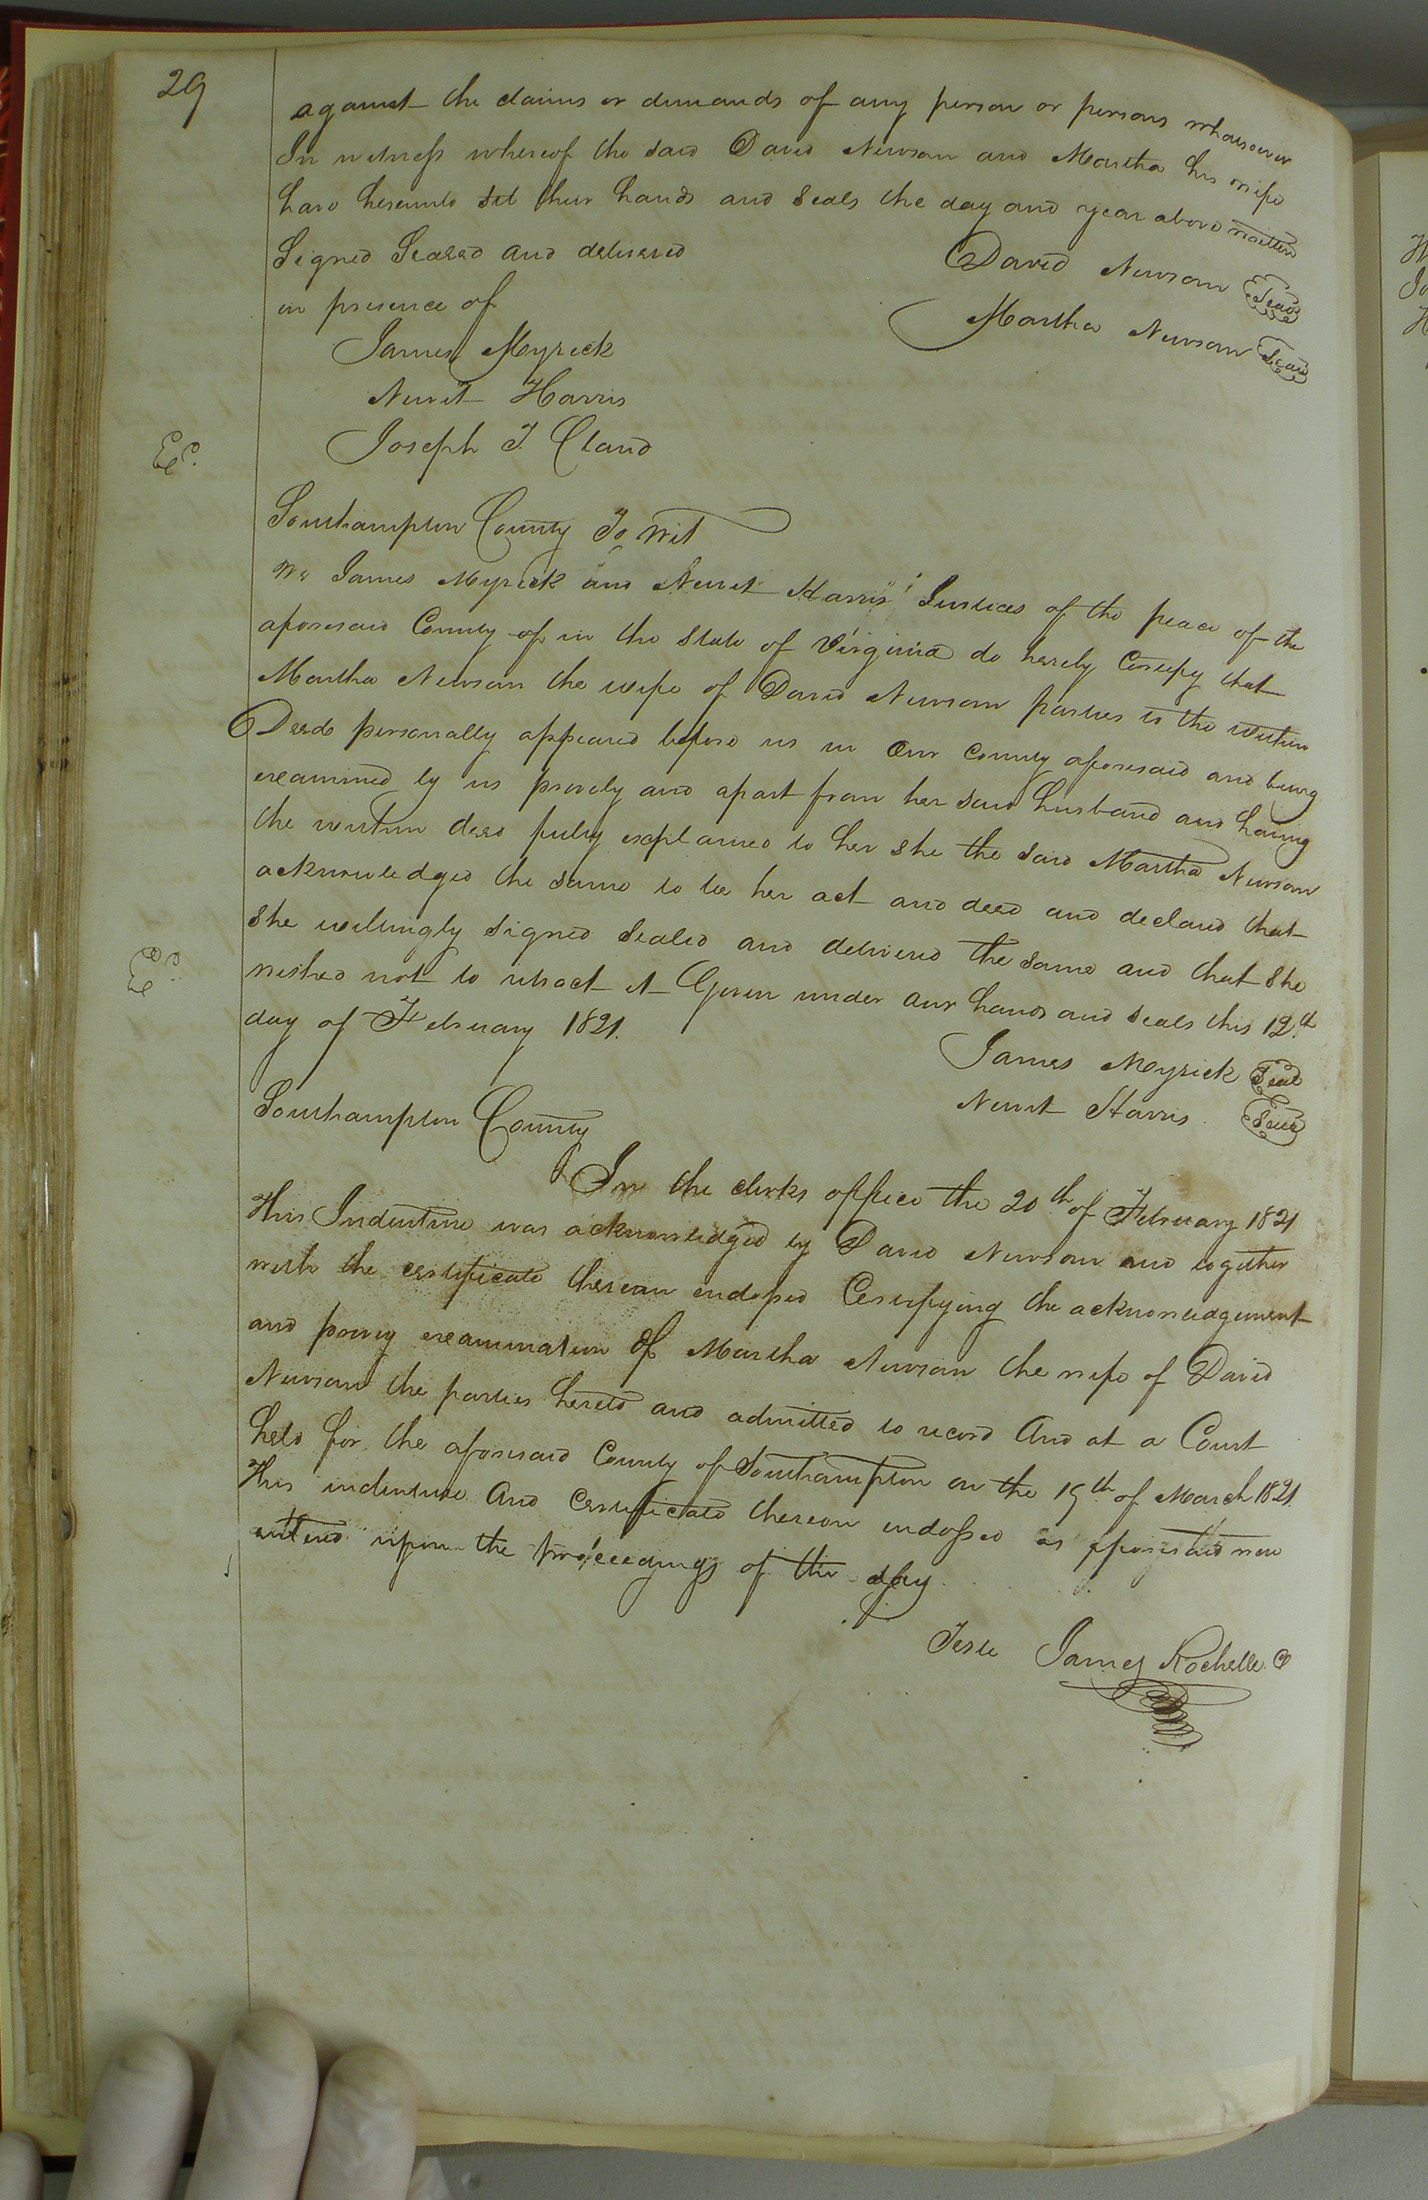 29
against the claims or demands of any person or persons whomsoever
In witness whereof the said David Newsom and Martha his wife
have hereunto set their hands and seals the day and year above written
Signed Sealed and delivered
David Newsom Seal
in presence of
Martha Newsom Seal
James Myrick
Newit Harris
Joseph T. Claud
Ex.
Southampton County To Wit
We James Myrick and Newit Harris Justices of the peace of the
aforesaid County of in the State of Virginia do hereby Certify that
Martha Newsom the wife of David Newsom parties to the within
Deed personally appeared before us in our County aforesaid and being
examined by us privily and apart from her said husband and having
the within deed fully explained to her she the said Martha Newsom
acknowledged the same to be her act and deed and declared that
She willingly signed sealed and delivered the same and that she
Ex.
wished not to retract it Given under our hands and seals this 12th
day of February 1821.
James Myrick Seal
Newit Harris Seal
Southampton County
In the clerks office the 20th of February 1821
This Indenture was acknowledged by David Newsom and together
with the certificate thereon endossed Certifying the acknowledgement
and privy examination of Martha Newsom the wife of David
Newsom the parties hereto and admitted to record And at a Court
held for the aforesaid County of Southampton on the 19th of March 1821.
This indenture And Certificate thereon endossed as aforesaid were
entered upon the proceedings of the day.
Teste James Rochelle C